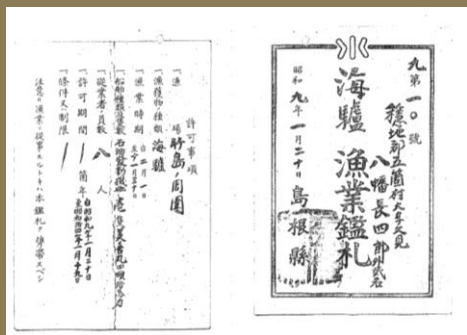 九第一〇號
穩地郡五箇村大字久見
八幡長四郎外貳名
海驢漁業鑑札
昭和九年一月二十日 島根縣
許可事項
一、漁場 竹島ノ周圍
一、漁獲物ノ種類 海驢
一、漁業時期 自二月一日
一、船舶種類及隻數 石油發動機
一、從業者ノ員數 八人
一、許可期間 一箇年 自昭和九年一月二十日
一月十九日
一、條件又ハ制限
注意 漁業ニ從事スルトキハ本鑑札ヲ携帶スベシ